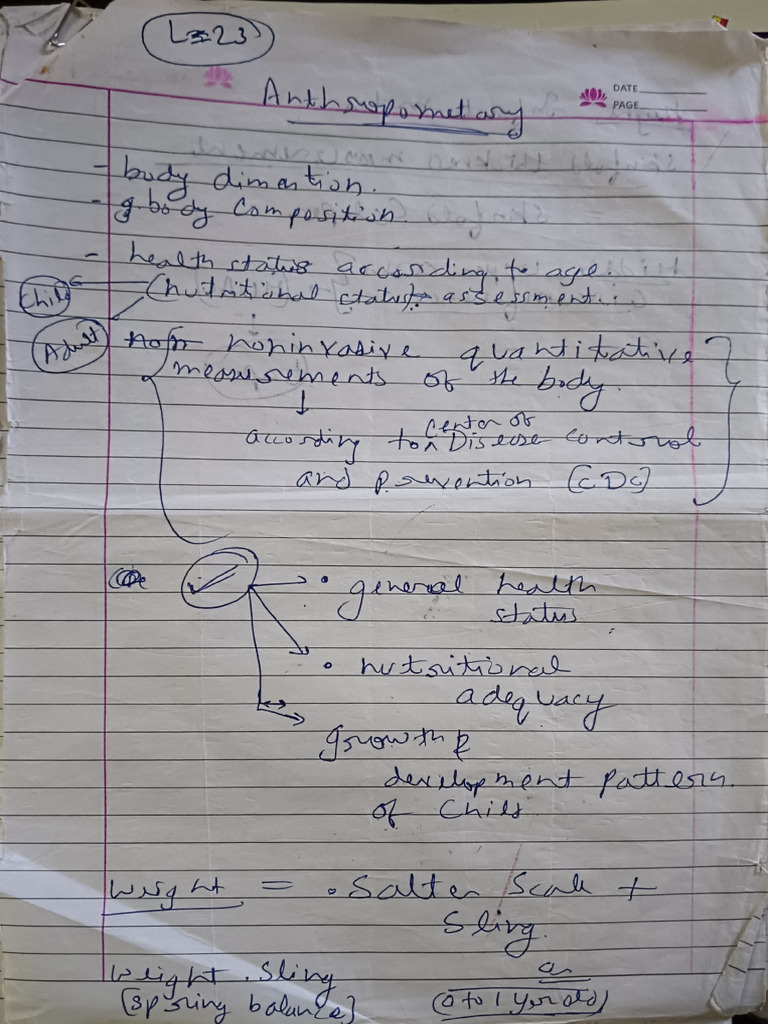 L=23
DATE
PAGE
Anthropometary
- body dimention.
- body Composition
- health status according to age.
Child
(nutritional status) assessment.
Adult
noninvasive quantitative
measurements of the body.
↓
center of
according to Disease control
and prevention [CDC]
• general health
status
• nutritional
adequacy
growth &
development pattern
of Child
Weight = • Salter Scale +
Sling.
Weight. Sling
[spring balance]
(0 to 1 yer old)